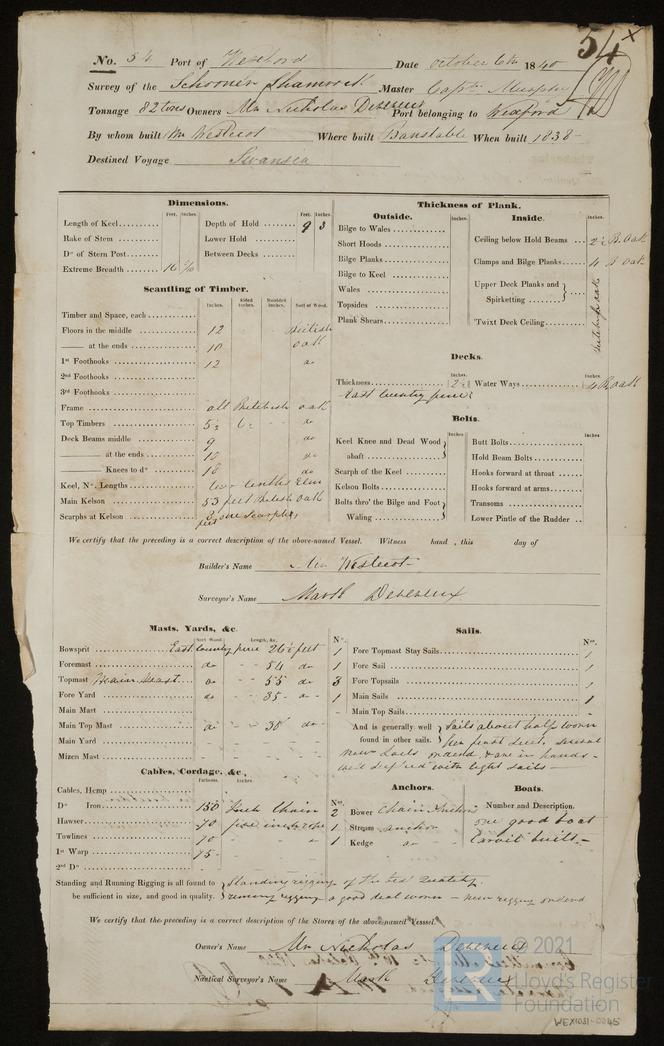 54 x
No. 54 Port of Wexford Date October 6th 1840
Survey of the Schooner Shamrock Master Captn Murphy
Tonnage 82 tons Owners Mr Nicholas Devereux Port belonging to Wexford
By whom built Mr Westcot Where built Banstable When built 1838
Destined Voyage Swansea
Dimensions.
Feet. Inches.
Length of Keel
Rake of Stem
Do of Stern Post
Extreme Breadth 16
Feet. Inches.
Depth of Hold 9 3
Lower Hold
Between Decks
Scantling of Timber.
Inches. Sided Inches. Moulded Inches. Sort of Wood.
Timber and Space, each
Floors in the middle 12 British
—— at the ends 10 oak
1st Foothooks 12 do
2nd Foothooks
3rd Foothooks
Frame all British oak
Top Timbers 5½ do
Deck Beams middle 9 do
—— at the ends 10 do
—— Knees to do 18 do
Keel, No. Lengths two lenths Elm
Main Kelson 53 feet British oak
Scarphs at Kelson 3 feet one scarph
Thickness of Plank.
Outside. Inches.
Bilge to Wales
Short Hoods
Bilge Planks
Bilge to Keel
Wales
Topsides
Plank Shears
Inside. Inches.
Ceiling below Hold Beams 2½ B. Oak
Clamps and Bilge Planks 4 B oak
Upper Deck Planks and
Spirketting
'Twixt Deck Ceiling
Decks.
Inches. Inches.
Thickness 2½ Water Ways 4 B oak
East Country pine
Bolts.
Inches Inches
Keel Knee and Dead Wood
abaft
Scarph of the Keel
Kelson Bolts
Bolts thro' the Bilge and Foot
Waling
Butt Bolts
Hold Beam Bolts
Hooks forward at throat
Hooks forward at arms
Transoms
Lower Pintle of the Rudder
We certify that the preceding is a correct description of the above-named Vessel. Witness hand, this day of
Builder's Name Mr Westcot
Surveyor's Name Mark Devereux
Masts, Yards, &c.
Sort Wood. Length, &c.
Bowsprit East Country pine 26½ feet
Foremast do 54 do
Topmast Main Mast do 55 do
Fore Yard do 35 do
Main Mast
Main Top Mast do 38 do
Main Yard
Mizen Mast
Sails.
No. Nos.
1 Fore Topmast Stay Sails 1
1 Fore Sail 1
3 Fore Topsails 1
1 Main Sails 1
Main Top Sails
And is generally well
found in other sails. Sails about half worn
new Sails ordered & are in hands
well supl'ed with light sails
Cables, Cordage, &c.
Fathoms. Inches.
Cables, Hemp
Do Iron 150 Inch Chain
Hawser 70 five inch rope
Towlines 70
1st Warp 75
2nd Do
Anchors.
Nos.
2 Bower Chain Anchors
1 Stream anchor
1 Kedge do
Boats.
Number and Description.
one good boat
Carvil built
Standing and Running Rigging is all found to
be sufficient in size, and good in quality. Standing rigging of the best quality.
running rigging a good deal worn — new rigging ordered
We certify that the preceding is a correct description of the Stores of the above-named Vessel.
Owner's Name Mr Nicholas Devereux
Nautical Surveyor's Name Mark Devereux
LR © 2021
Lloyd's Register
Foundation
WEX1031-0045